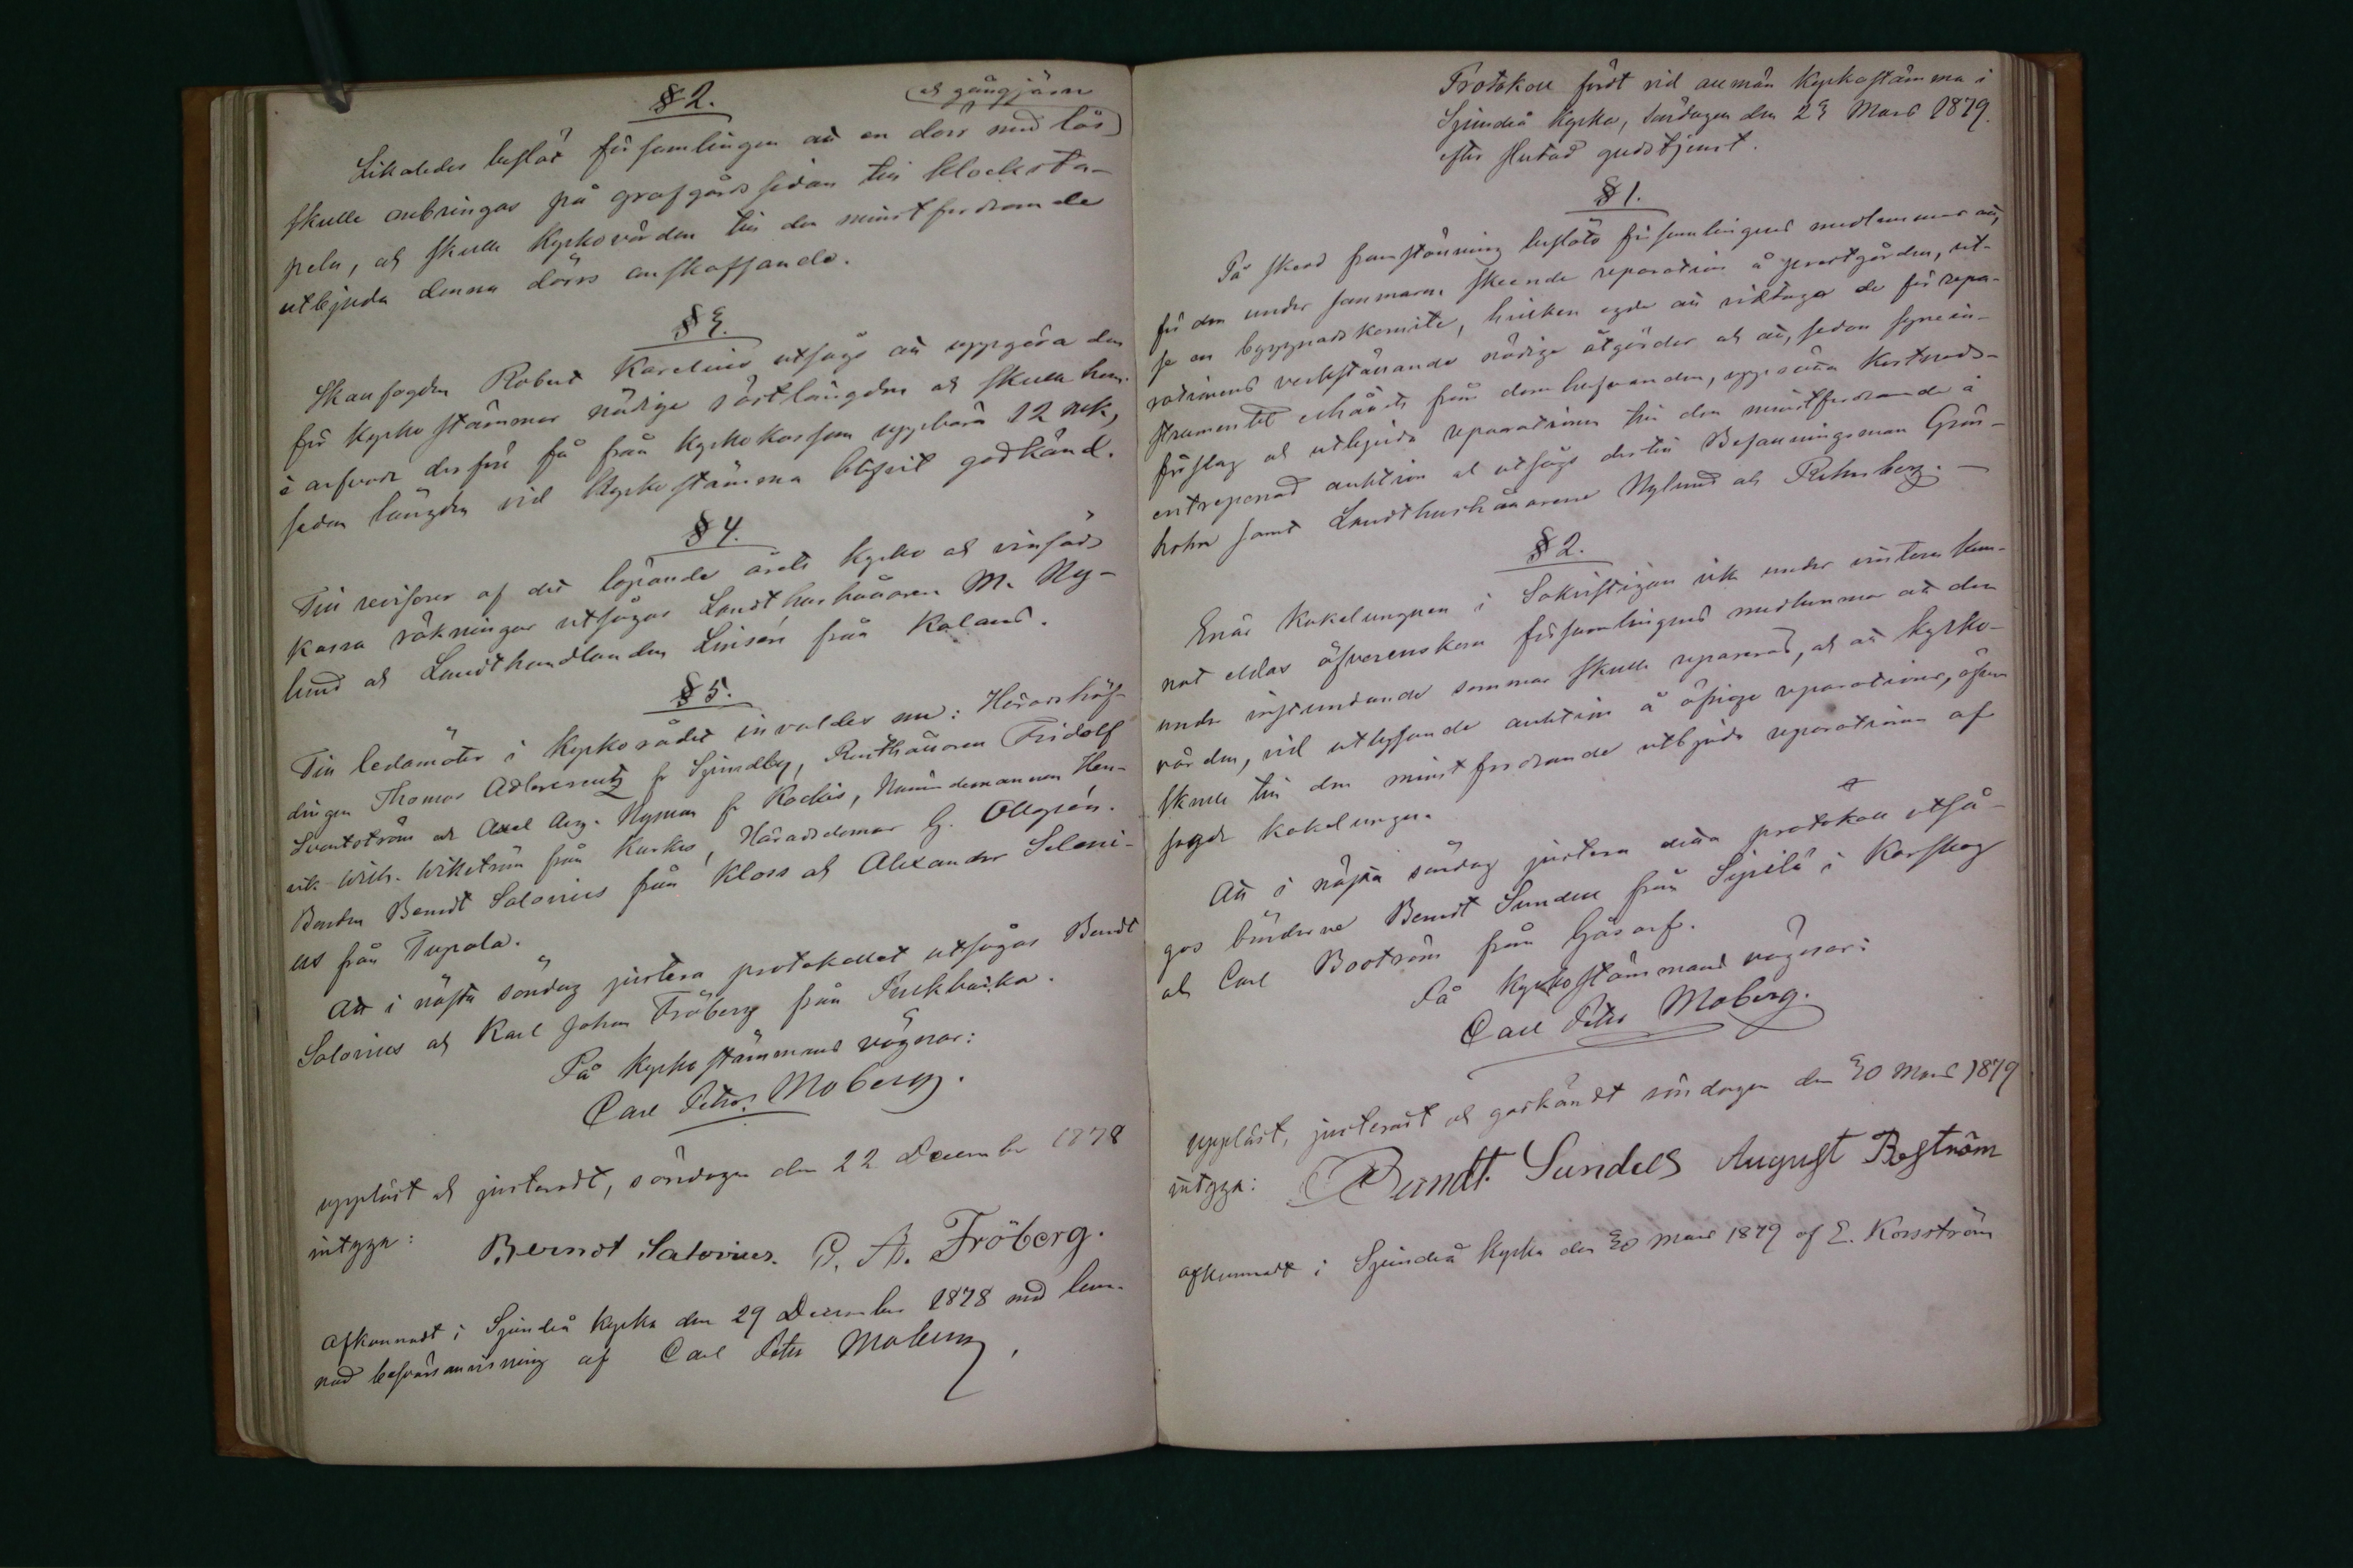 § 2.
och gångjärn
Likaledes beslöt församlingen att en dörr med lås
skulle anbringas på grafgårdssidan till klocksta-
peln, och skulle Kyrkovärden till den minstfordrande
utbjuda denna dörrs anskaffande.
§ 3.
Skallfogden Robert Karelius utsågs att uppgöra den
för Kyrkostämmor nödiga röstlängden och skulle han
i arfvode derför få från Kyrkokassan uppbära 12 mk,
sedan längden vid Kyrkostämma blifvit godkänd.
§ 4.
Till revisorer af det löpande årets Kyrko och vinsäds
kassa räkningar utsågos Landthushållaren M. Ny-
lund och Landthandlanden Linsén från Kaland.
§ 5.
Till ledamöter i Kyrkorådet invaldes nu: Häradshöf-
dingen Thomas Adlercreutz fr Sjundby, Rusthållaren Fridolf
Sventström och Axel Aug. Nyman fr Kockis, Nämndemannen Hen-
rik Wilh. Wikström från Kurkis, Häradsdomar G. Ollgrén.
Bonden Berndt Salovius från Kloss och Alexander Seleni-
us från Tupala.
Att i nästa söndag justera protokollet utsågos Berndt
Salovius och Karl Johan Fröberg från Purkbacka.
På Kyrkostämmans vägnar:
Carl Petter Moberg.
uppläst och justeradt, söndagen den 22 December 1878
intyga:
Berndt Salovius. C. A. Fröberg.
Afkunnadt i Sjundeå Kyrka den 29 December 1878 med lem-
nad besvärsanvisning af Carl Petter Moberg,
Protokoll fördt vid allmän Kyrkostämma i
Sjundeå Kyrka, Söndagen den 23 Mars 1879.
efter slutad gudstjenst.
§ 1.
På skedd framställning beslöto församlingens medlemmar att,
för den under sommaren skeende reparation å prestgården, ut-
se en byggnadskomité, hvilken egde att vidtaga de för repa-
rationens verkställande nödiga åtgärder och att, sedan synein-
strumentet erhållits från domhafvanden, uppsätta kostnads-
förslag och utbjuda reparationen till den minstfordrande å
entreprenad auktion och utsågs dertill Befallningsman Grön-
holm samt Landthushållarene Nylund och Rehnberg. —
§ 2.
Enär Kakelugnen i Sakristigan icke under vintern kun-
nat eldas öfverenskom församlingens medlemmar att den
under instundande sommar skulle repareras, och att kyrko-
värden, vid utlysande auktion å öfriga reparationer, äfven
skulle till den minst fordrande utbjuda reparationen af
sagde kakelugn.
Att i nästa söndag justera detta protokoll utså-
gos bönderne Berndt Sundell från Sipilä i Karskog
och Carl Boström från Gåsarf.
På Kyrkostämmans vägnar:
Carl Petter Moberg.
uppläst, justeradt och godkändt söndagen den 30 Mars 1879
intyga:
Berndt Sundell August Boström
afkunnadt i Sjundeå Kyrka den 30 Mars 1879 af E. Korsström